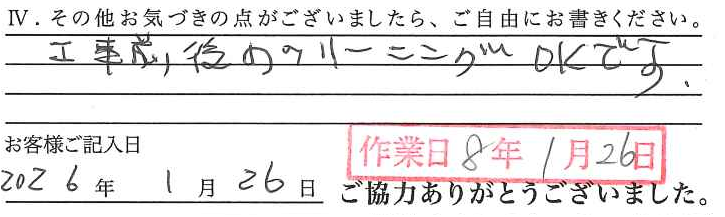 Ⅳ．その他お気づきの点がございましたら、ご自由にお書きください。
工事前,後のクリーニングOKです.
お客様ご記入日
作業日 8年 1月26日
2026年 1月26日
ご協力ありがとうございました。